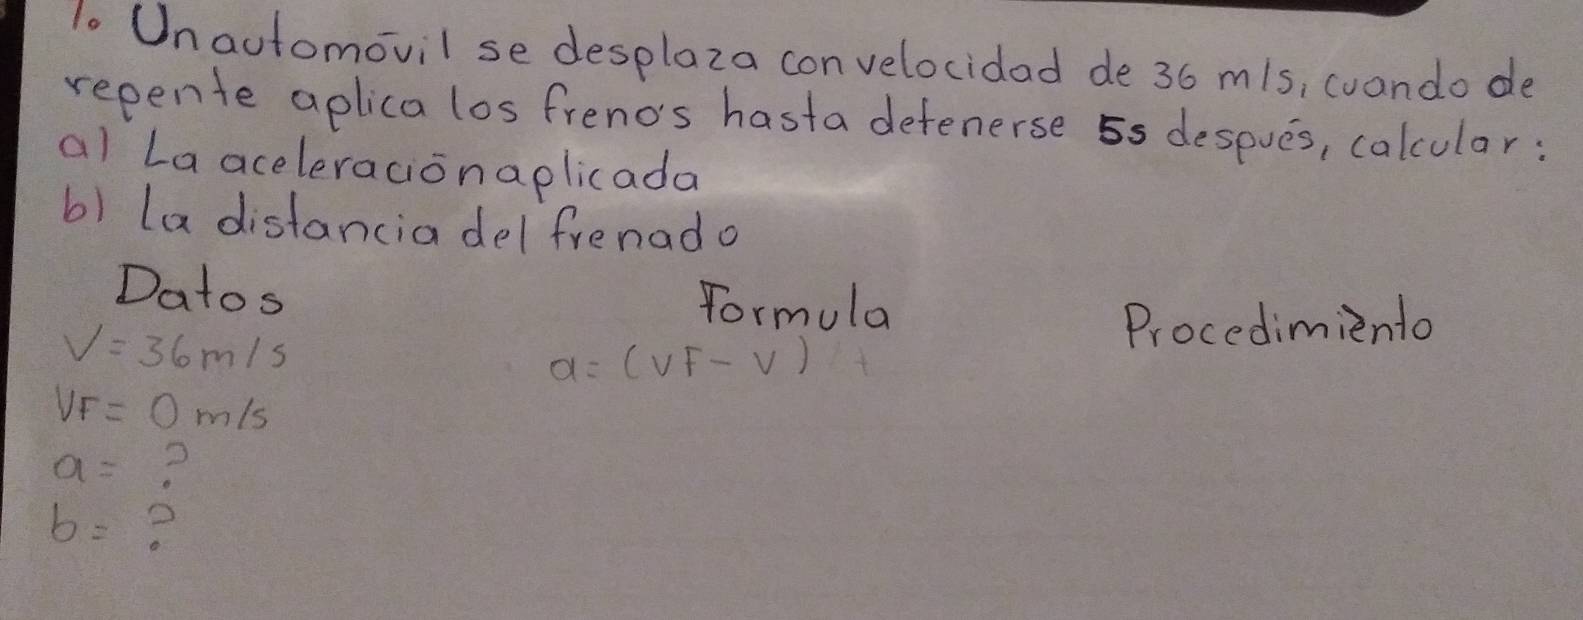 1. Un automóvil se desplaza con velocidad de 36 m/s, cuando de
repente aplica los frenos hasta detenerse 5s después, calcular:
a) La aceleración aplicada
b) la distancia del frenado
Datos Formula Procedimiento
V = 36 m/s a = (VF - V)
VF = 0 m/s
a = ?
b = ?